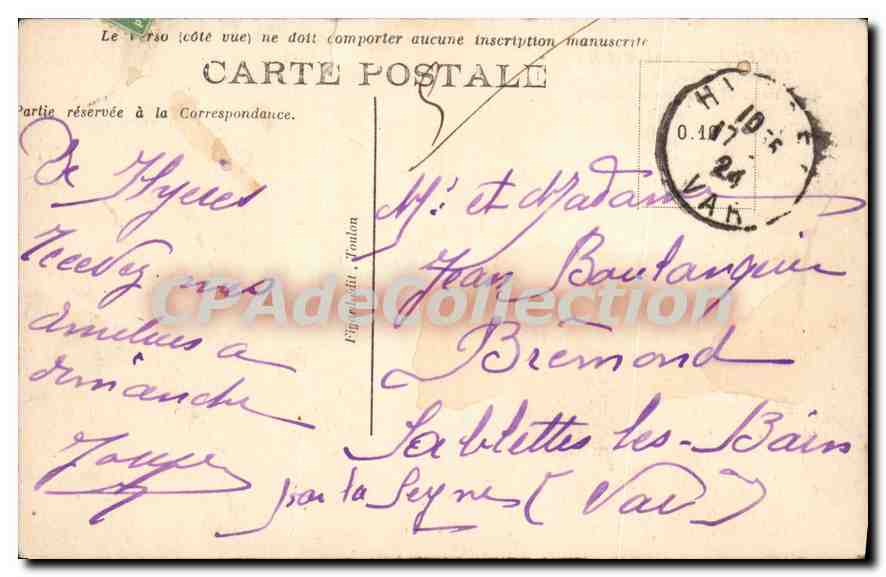 Le Verso (côté vue) ne doit comporter aucune inscription manuscrite
CARTE POSTALE
Partie réservée à la Correspondance.
De Hyères
Recevez mes
amitiés a
dimanche
Figue edit, Toulon
CPAdeCollection
0.10
10
17
24
VAR
Mr et Madame
Jean Boulanguier
Brémond
Sablettes les-Bains
par la Seyne (Var)